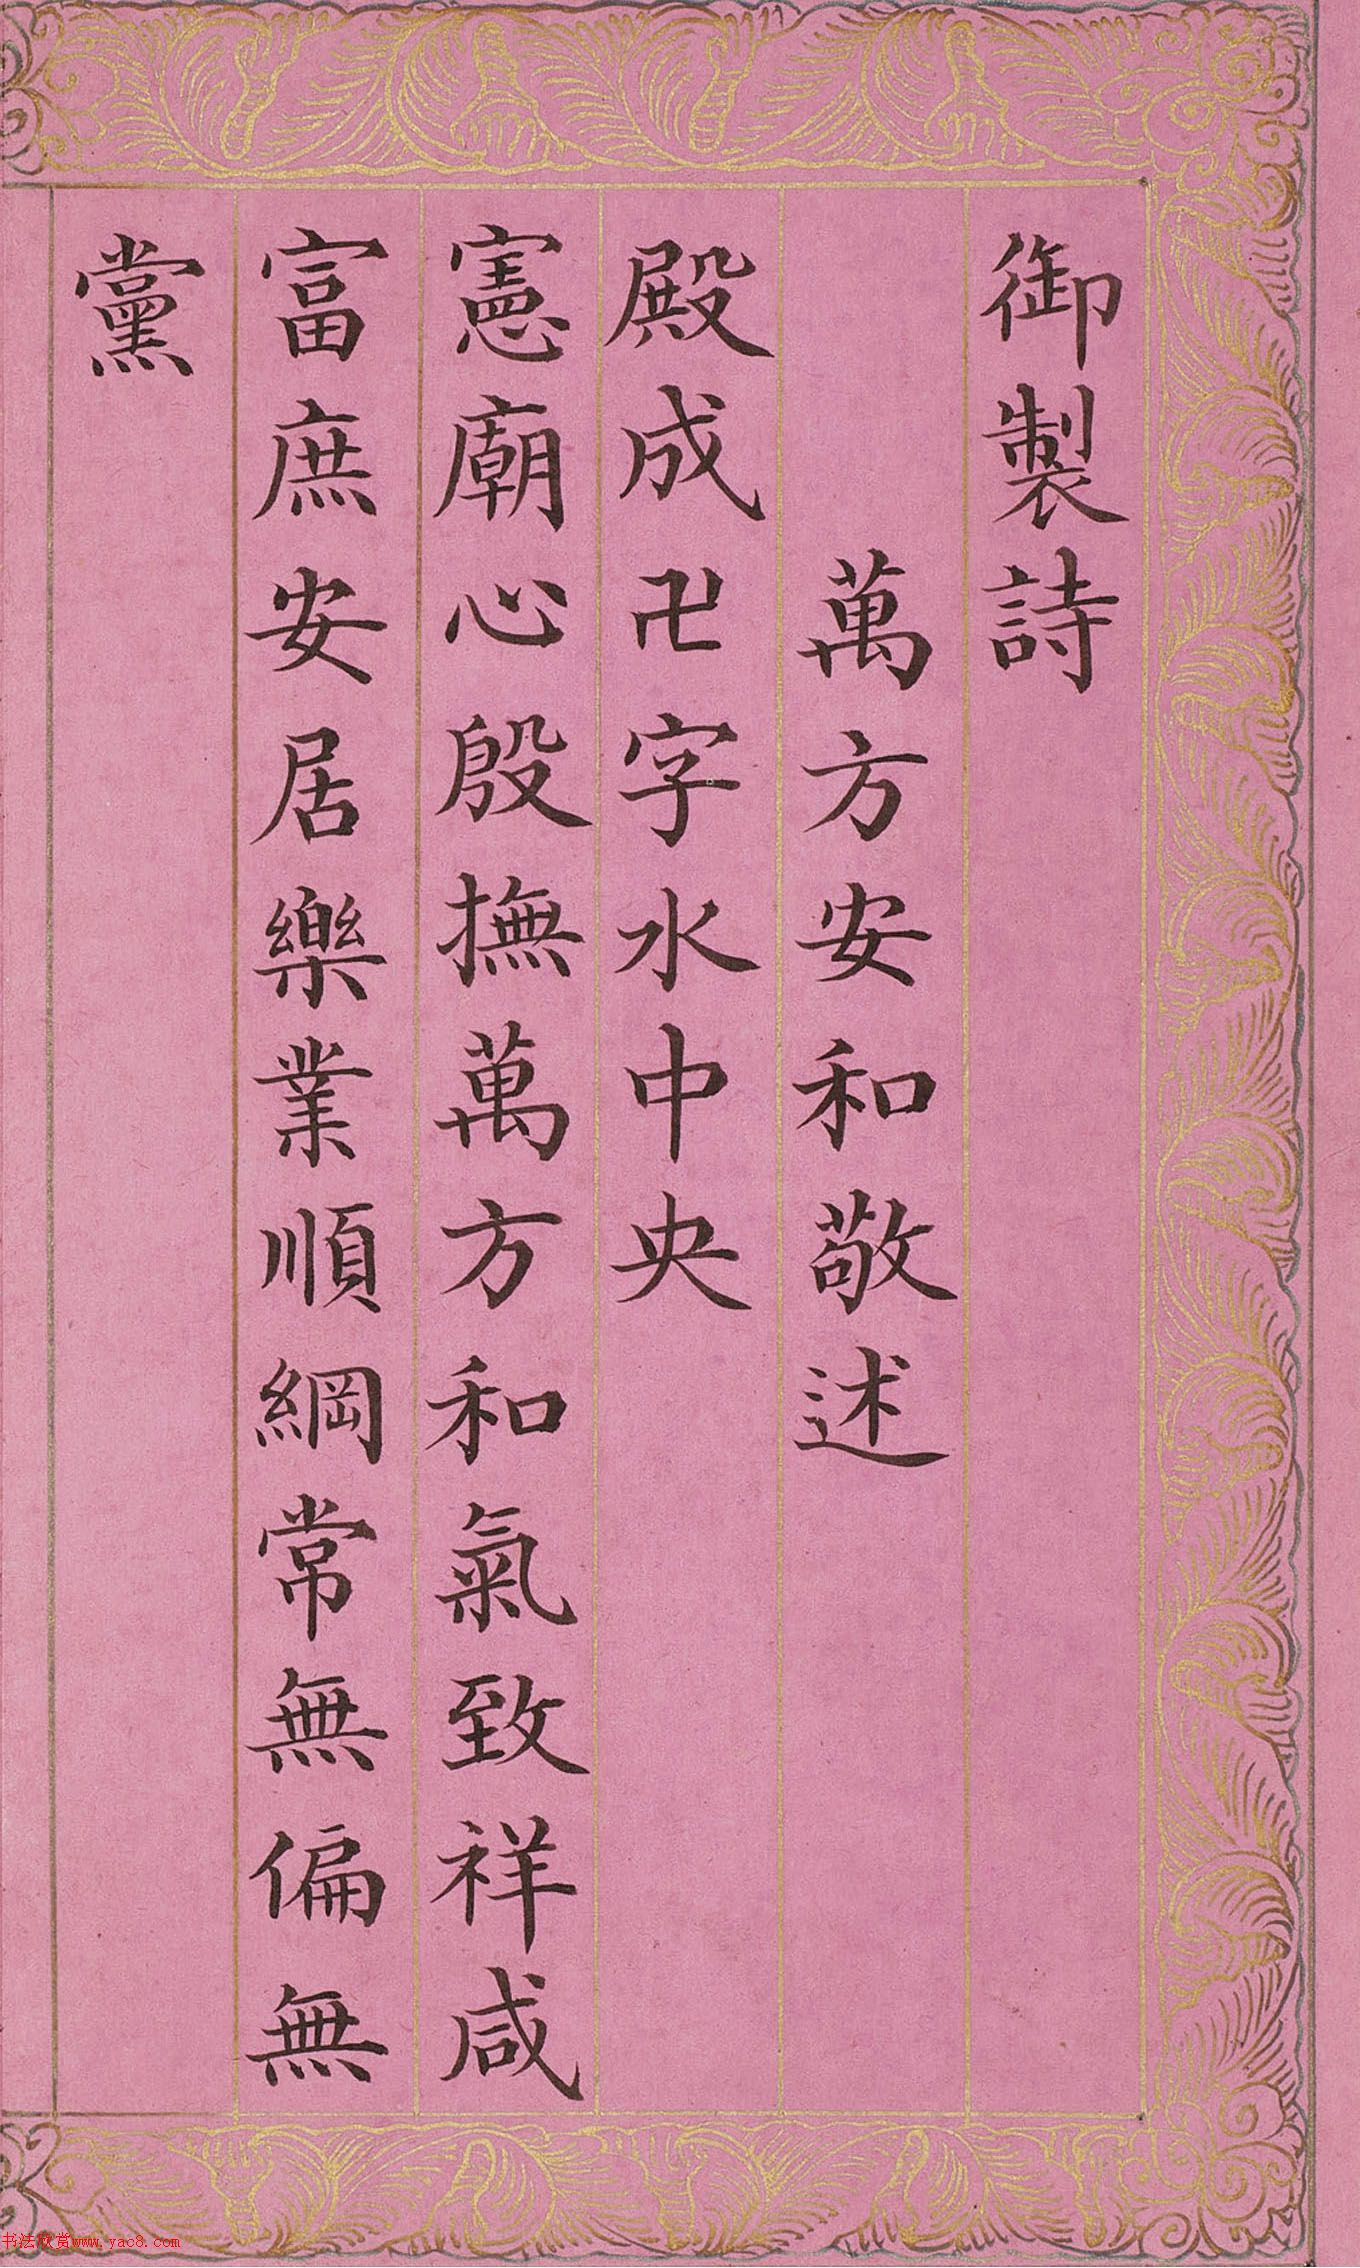 御製詩
萬方安和敬述
殿成卍字水中央
憲廟心殷撫萬方和氣致祥咸
富庶安居樂業順綱常無偏無
黨
书法欣赏www.yac8.com